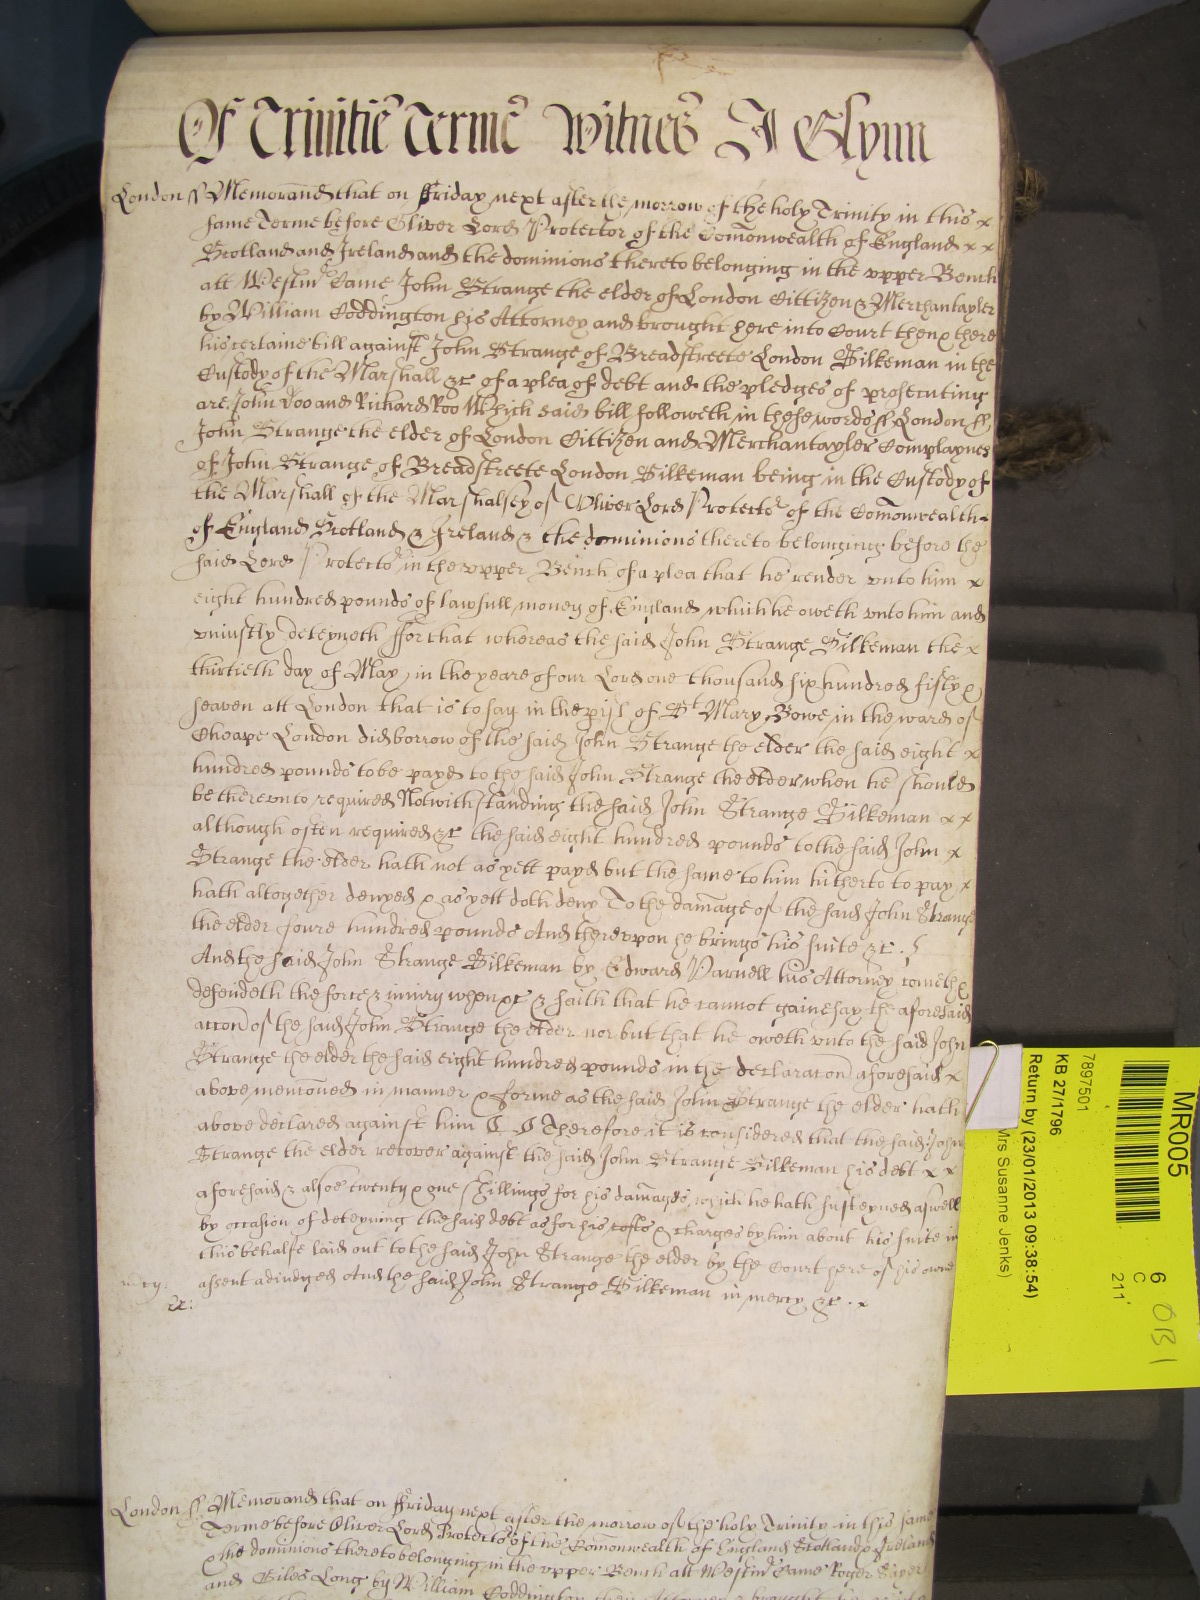 Of Trinitie Terme Witnes J Glynn
London ss Memorand that on ffriday next after the morrow of the holy Trinity in this x
same Terme before Oliver Lord Protector of the Comonwealth of England x x
Scotland and Ireland and the dominions thereto belonging in the vpper Bench
att Westmr Came John Strange the elder of London Cittizen & Merchantayler
by William Coddington his Attorney and brought here into Court then & there
his certaine bill against John Strange of Breadstreete London Silkeman in the
Custody of the Marshall &c of a plea of debt and the pledges of prosecuting
are John Doo and Richard Roo Which said bill followeth in these words ss London ss
John Strange the elder of London Cittizen and Merchantayler Complaynes
of John Strange of Breadstreete London Silkeman being in the Custody of
the Marshall of the Marshalsey of Oliver Lord Protector of the Comonwealth
of England Scotland & Ireland & the dominions thereto belonging before the
said Lord Protector in the vpper Bench of a plea that he render vnto him x
eight hundred pounds of lawfull money of England which he oweth vnto him and
vniustly deteyneth ffor that whereas the said John Strange Silkeman the x
thirtieth day of May in the yeare of our Lord one thousand six hundred fifty &
seaven att London that is to say in the pish of St Mary Bowe in the ward of
Cheape London did borrow of the said John Strange the elder the said eight x
hundred pounds to be payd to the said John Strange the elder when he should
be therevnto required Notwithstanding the said John Strange Silkeman x x
although often required &c the said eight hundred pounds to the said John x
Strange the elder hath not as yett payd but the same to him hitherto to pay x
hath altogether denyed & as yett doth deny To the damage of the said John Strange
the elder foure hundred pounds And therevpon he brings his suite &c
And the said John Strange Silkeman by Edward Parnell his Attorney cometh &
defendeth the force & iniury when &c & saith that he cannot gainesay the aforesaid
accon of the said John Strange the elder nor but that he oweth vnto the said John
Strange the elder the said eight hundred pounds in the declaracon aforesaid x
above menconed in manner & forme as the said John Strange the elder hath
above declared against him Therefore it is considered that the said John
Strange the elder recover against the said John Strange Silkeman his debt x x
aforesaid & alsoe twenty & one shillings for his damages which he hath susteyned aswell
by occasion of deteyning the said debt as for his costs & charges by him about his suite in
this behalfe laid out to the said John Strange the elder by the Court here of his owne
assent adiudged And the said John Strange Silkeman in mercy &c x
mcy
&c:
London ss Memorand that on ffriday next after the morrow of the holy Trinity in this same
Terme before Oliver Lord Protector of the Comonwealth of England Scotland & Ireland
& the dominions thereto belonging in the vpper Bench att Westmr Came Roger
and Giles Long by William Coddington their Attorney & brought
MR005
6
C
211'
OBI
7897501
KB 27/1796
Return by (23/01/2013 09:38:54)
Mrs Susanne Jenks)